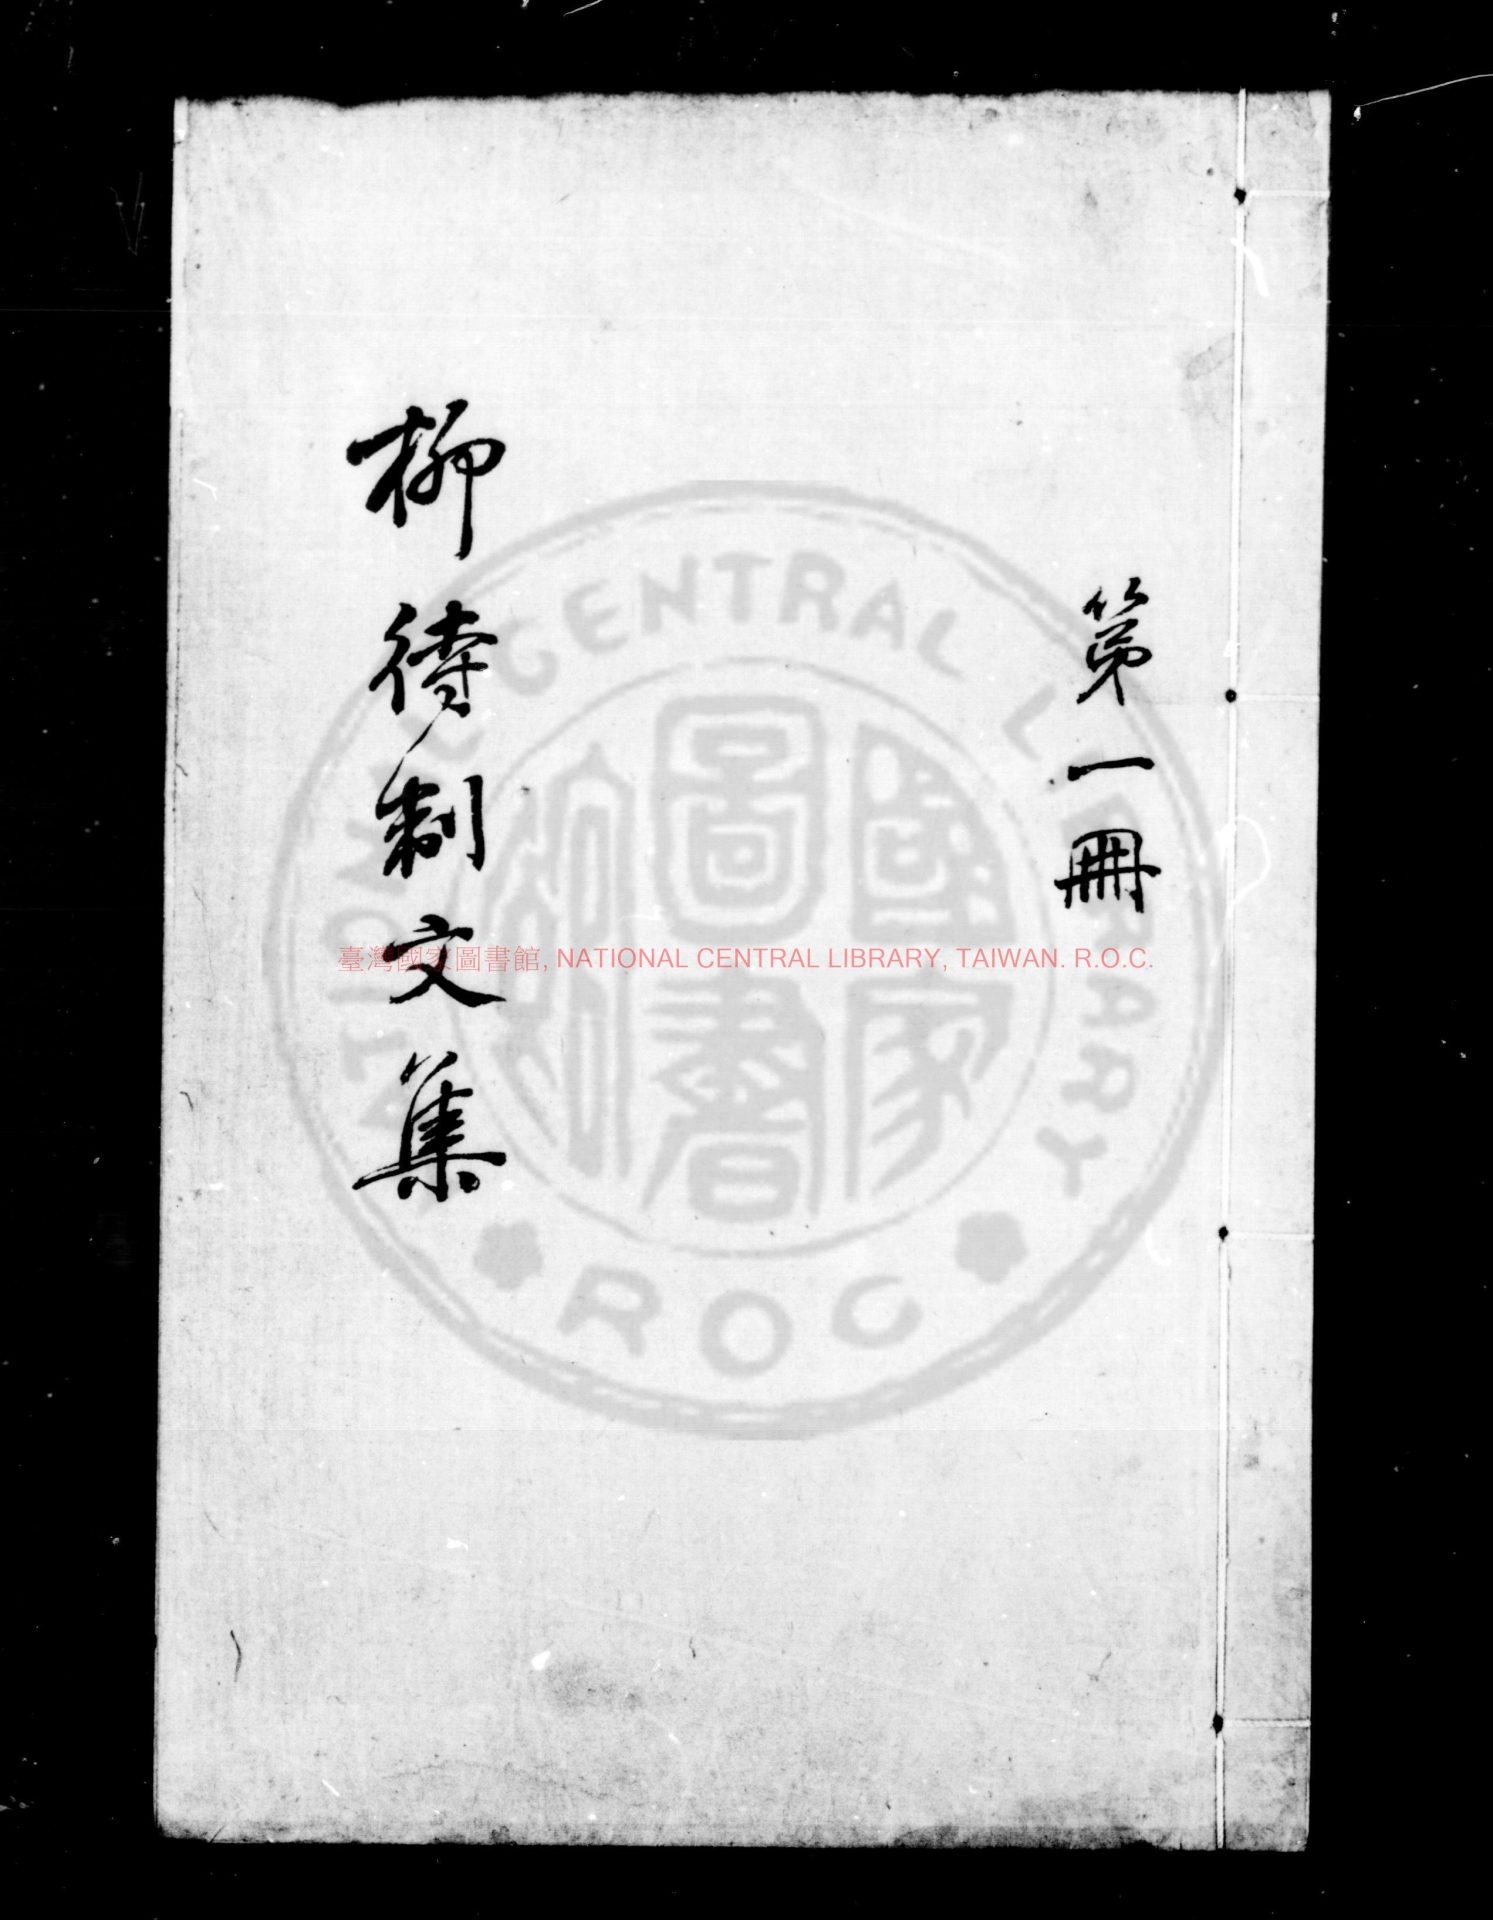 第一冊
柳待制文集
臺灣國家圖書館, NATIONAL CENTRAL LIBRARY, TAIWAN. R.O.C.
NATIONAL CENTRAL LIBRARY
國家
圖書
ROC